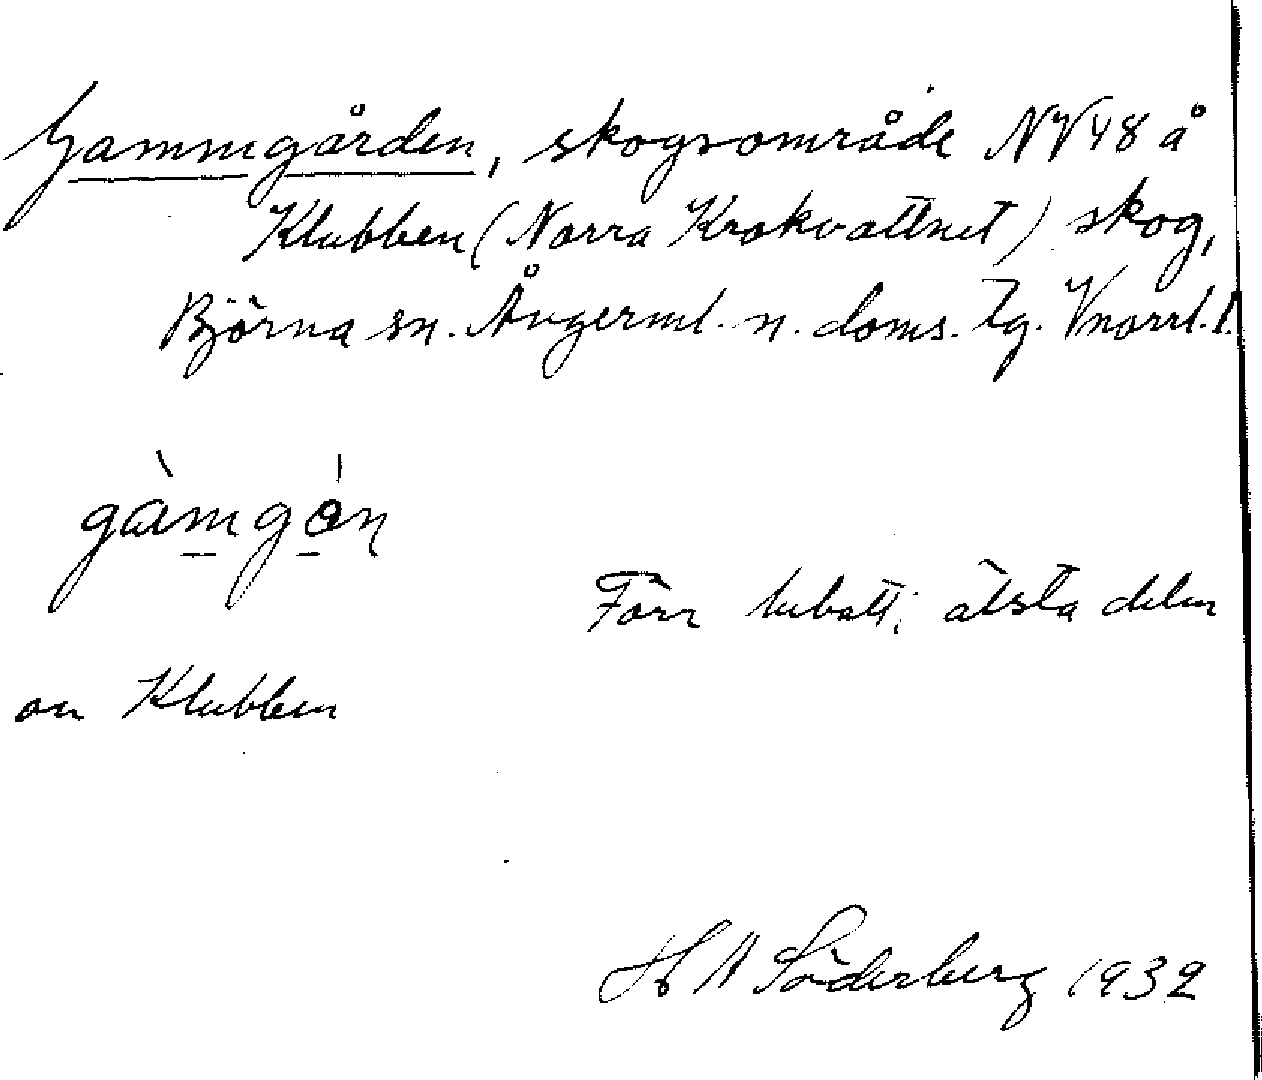 Gammgården, skogsområde NV48 å
Klubben (Norra Krokvattnet) skog,
Björna sn. Ångerml. n. doms. tg. Vnorrl. l.
gàmgón
Förr bebott; älsta delen
av Klubben
H A Söderberg 1932